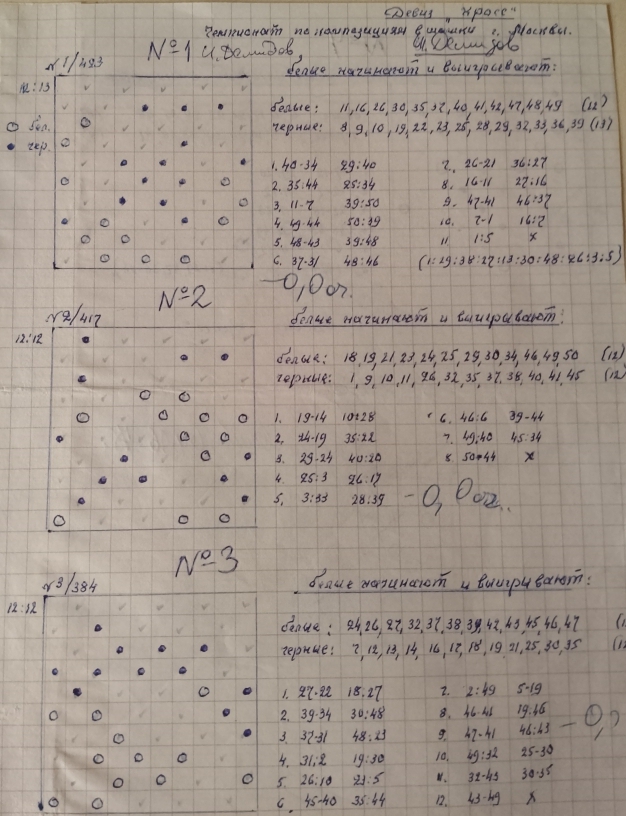 Девиз "Красс"
Чемпионат по композиции в шашки г. Москвы.
№1 И. Демидов И. Демидов
N1/483 белые начинают и выигрывают:
12:13
○ бел.
● чер.
белые: 11,16,26,30,35,37,40,41,42,47,48,49 (12)
черные: 8,9,10,19,22,23,25,28,29,32,33,36,39 (13)
1. 40-34 29:40 7. 26-21 36:27
2. 35:44 25:34 8. 16-11 27:16
3. 11-7 39:50 9. 47-41 46:37
4. 49-44 50:39 10. 7-1 16:7
5. 48-43 39:48 11. 1:5 x
6. 37-31 48:46 (1:29:38:27:13:30:48:26:3:5)
- 0,0 оч.
№2
N2/417 белые начинают и выигрывают:
12:12
белые: 18,19,21,23,24,25,29,30,34,46,49,50 (12)
черные: 1,9,10,11,26,32,35,37,38,40,41,45 (12
1. 19-14 10:28 6. 46:6 39-44
2. 24-19 35:22 7. 49:40 45:34
3. 29-24 40:20 8. 50-44 x
4. 25:3 26:17
5. 3:33 28:39 - 0,0 оч.
№3
N3/384 белые начинают и выигрывают:
12:12
белые: 24,26,27,32,37,38,39,42,43,45,46,47
черные: 7,12,13,14,16,17,18,19,21,25,30,35
1. 27-22 18:27 7. 2:49 5-19
2. 39-34 30:48 8. 46-41 19:46
3. 37-31 48:23 9. 47-41 46:43 - 0,
4. 31:2 19:30 10. 49:32 25-30
5. 26:10 23:5 11. 32-43 30-35
6. 45-40 35:44 12. 43-49 x